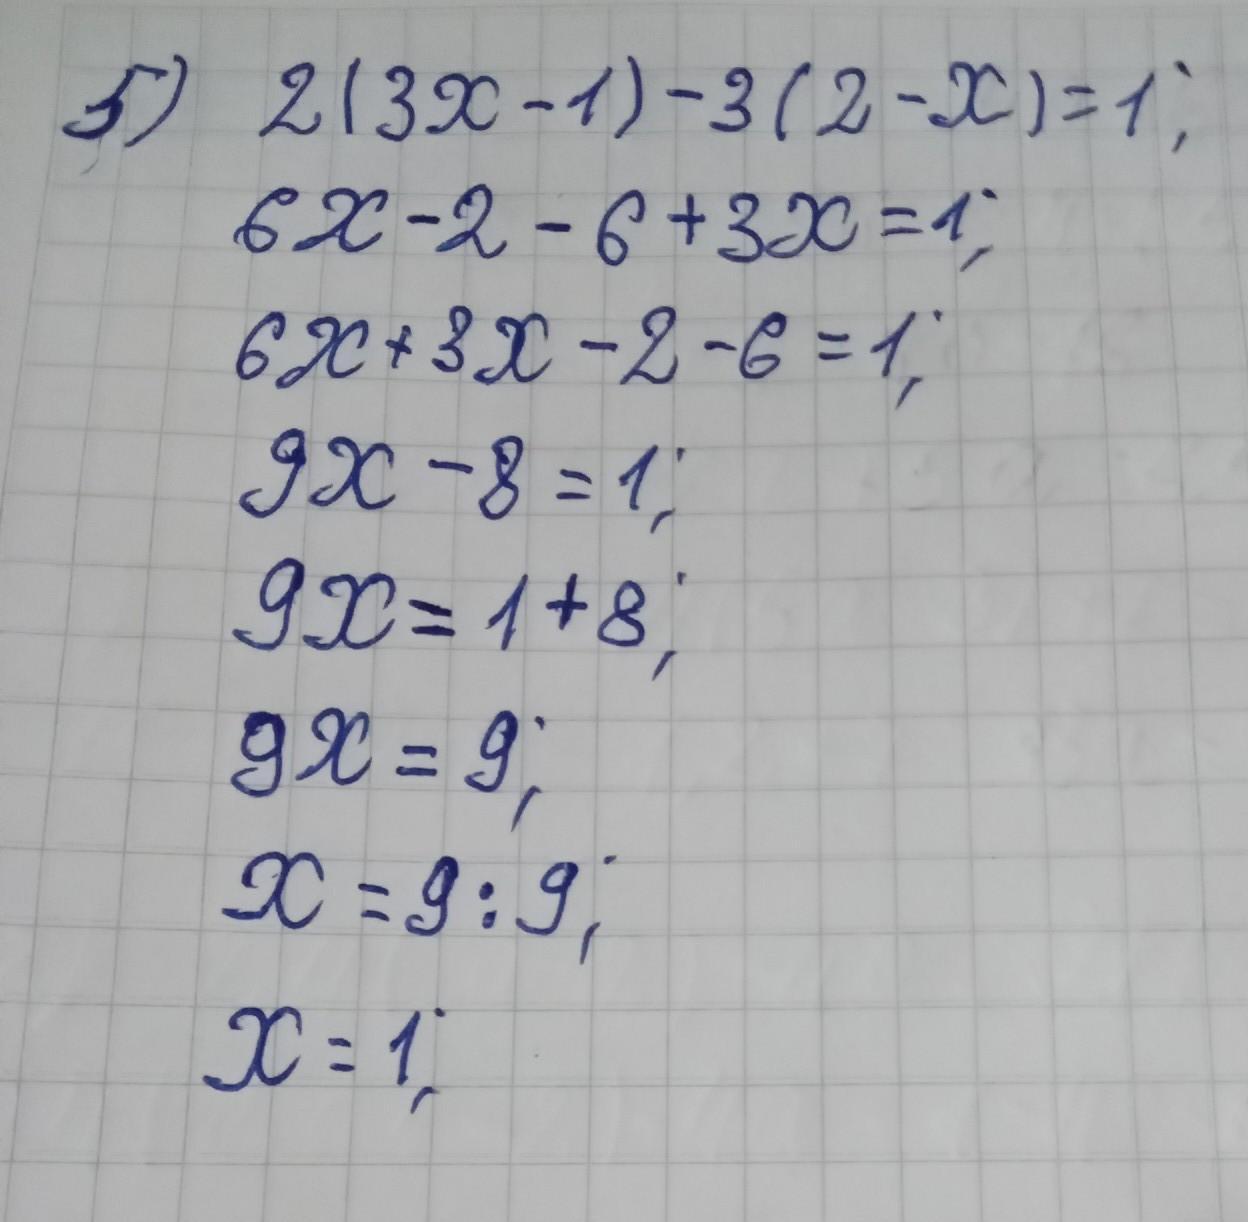 5) 2(3x-1)-3(2-x)=1;
6x-2-6+3x=1;
6x+3x-2-6=1;
9x-8=1;
9x=1+8;
9x=9;
x=9:9;
x=1;